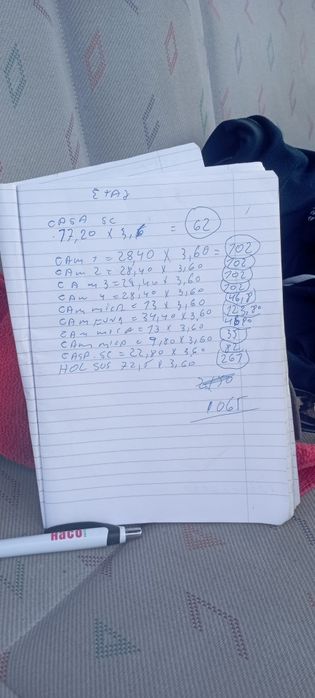 ETAJ
CASA SC
17,20 X 3,6 = 62
CAM 1 = 28,40 X 3,60 = 102
CAM 2 = 28,40 X 3,60 102
CAM 3 = 28,40 X 3,60 102
CAM 4 = 28,40 X 3,60 102
CAM MICĂ = 13 X 3,60 46,8
CAM 34,40 X 3,60 123,80
CAM MICĂ = 13 X 3,60 46,80
CAM MICĂ = 9,80 X 3,60 35
CASA SC = 22,80 X 3,60 82
HOL SUS 72,5 X 3,60 261
1065
HACO